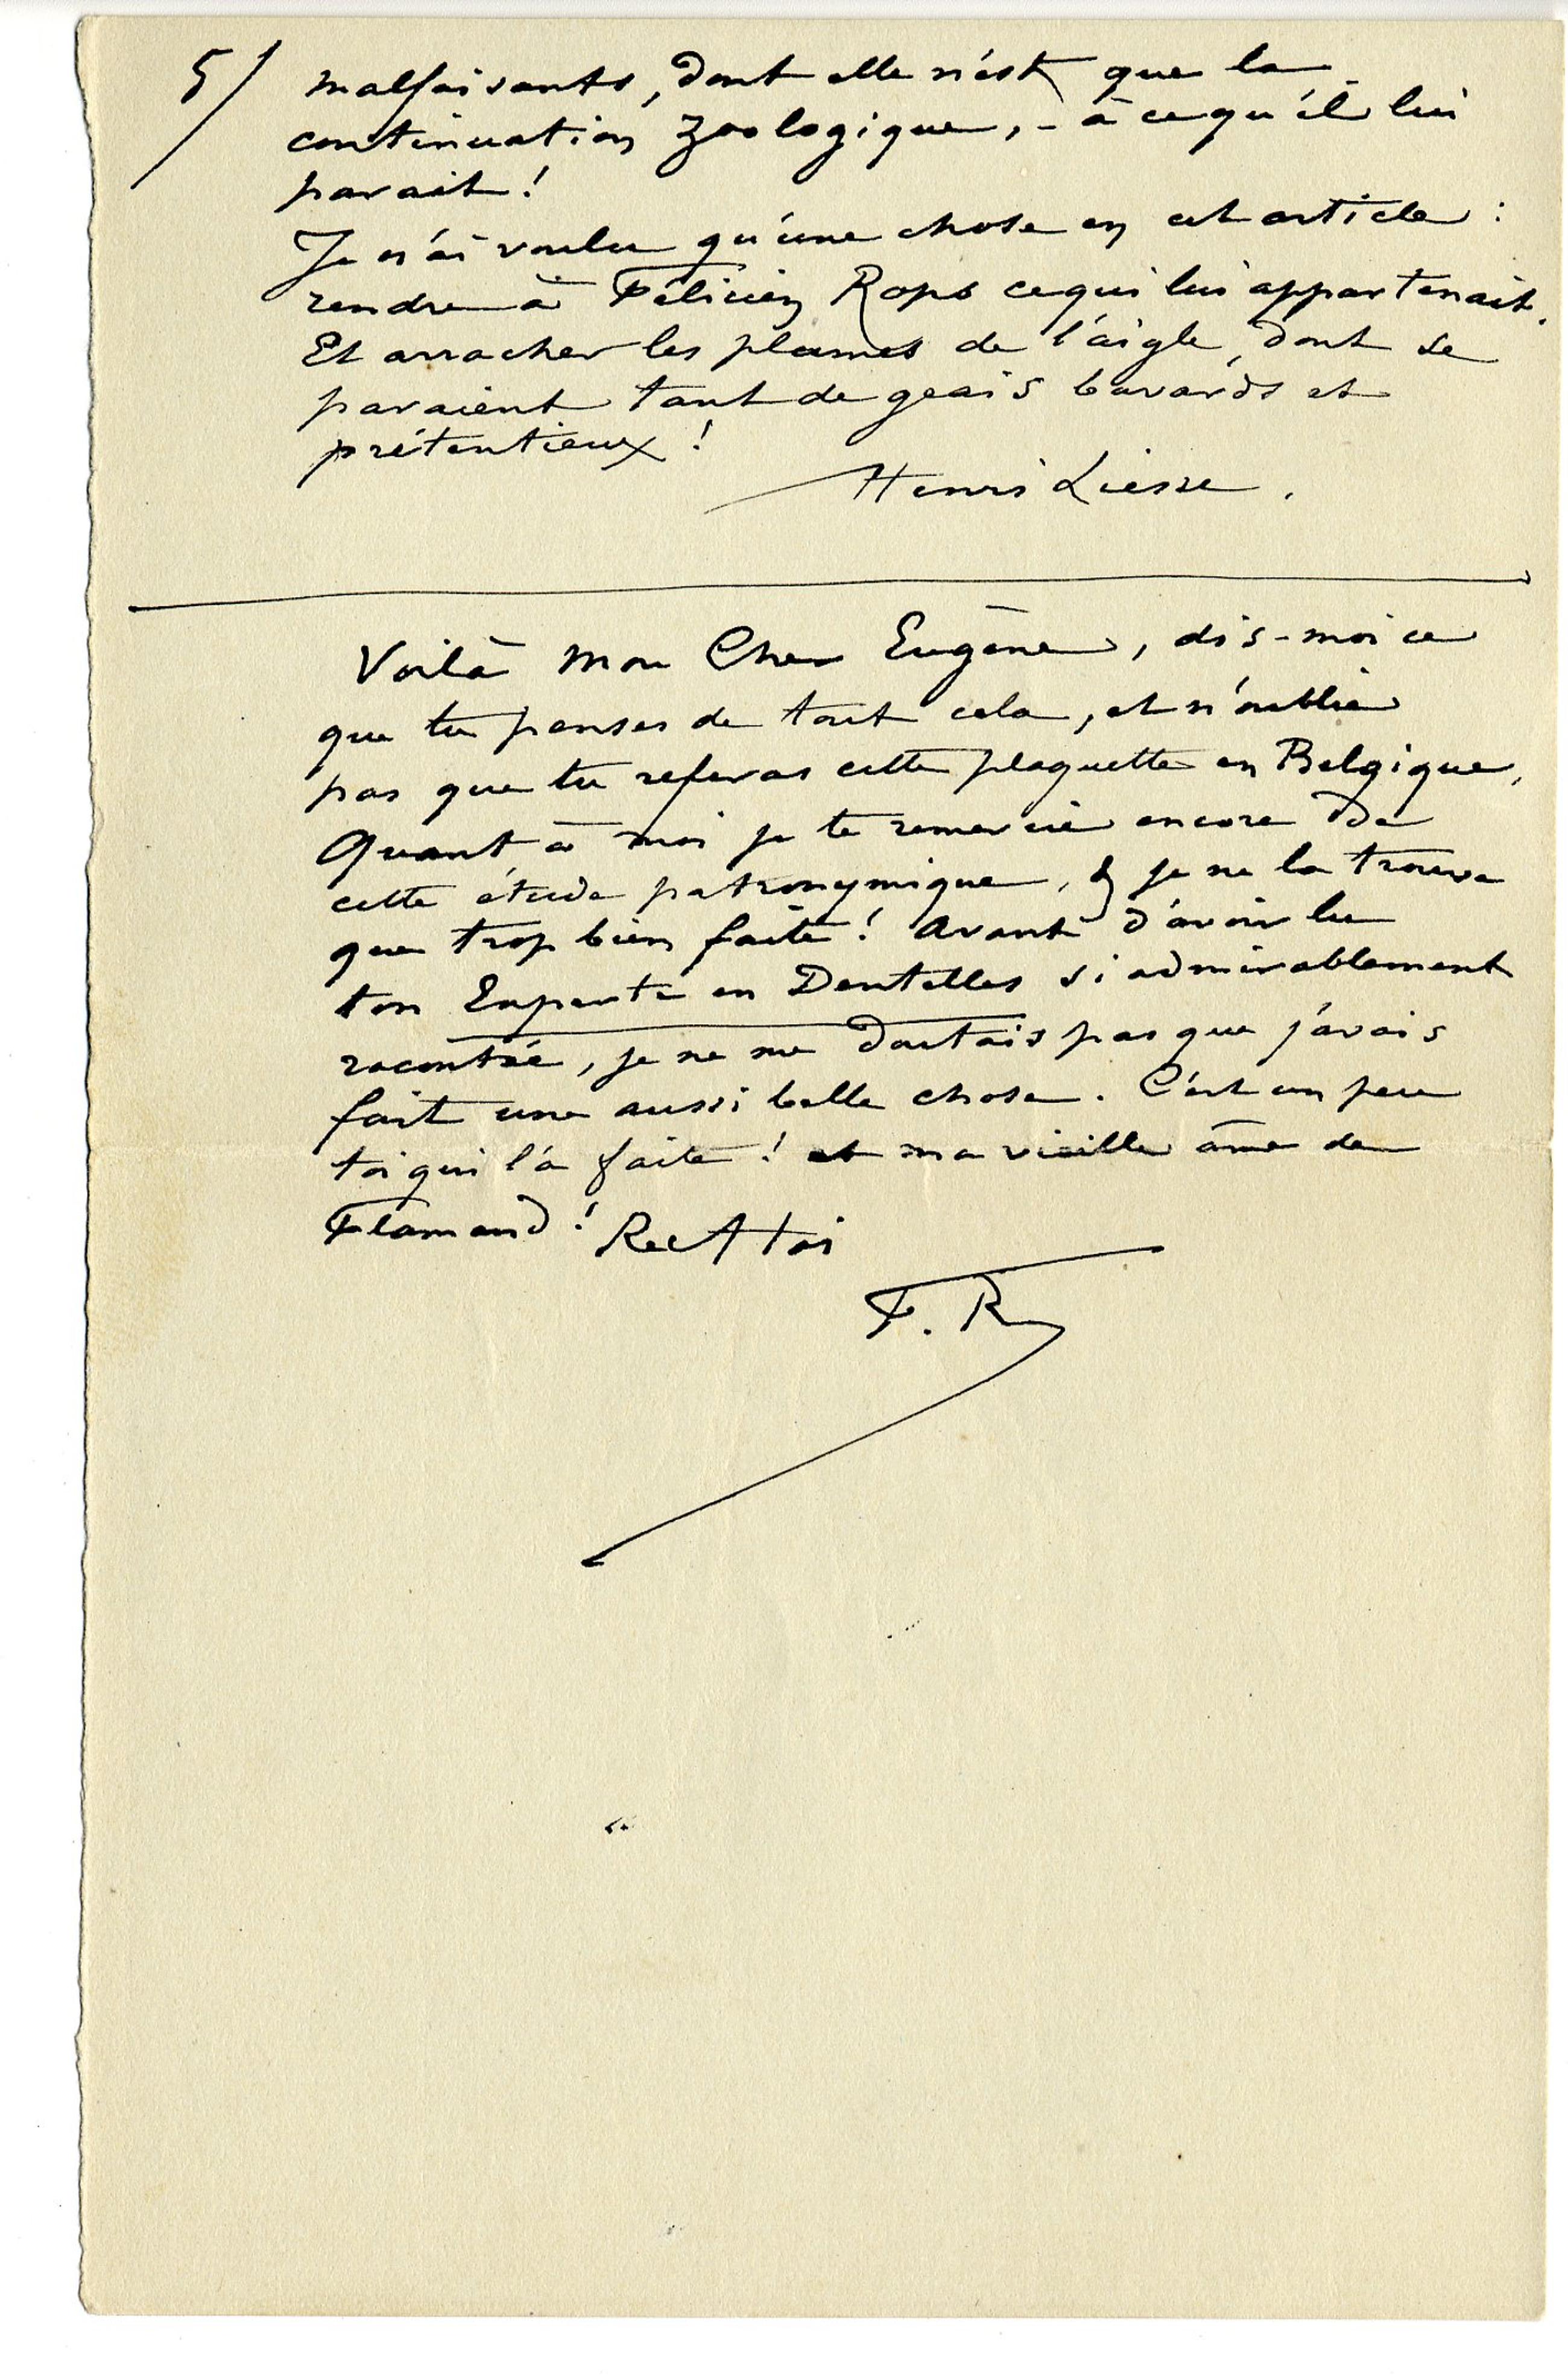 5/ malfaisants, dont elle n'est que la
continuation zoologique, - à ce qu'il lui
parait !
Je n'ai voulu qu'une chose en cet article :
rendre à Félicien Rops ce qui lui appartenait.
Et arracher les plumes de l'aigle, dont se
paraient tant de geais bavards et
prétentieux !
Henri Liesse.
Voilà mon Cher Eugène, dis-moi ce
que tu penses de tout cela, et n'oublie
pas que tu referas cette plaquette en Belgique,
Quant à moi je te remercie encore de
cette étude patronymique, & je ne la trouve
que trop bien faite ! Avant d'avoir lu
ton Experte en Dentelles si admirablement
racontée, je ne me doutais pas que j'avais
fait une aussi belle chose. C'est un peu
toi qui l'a faite ! et ma vieille âme de
Flamand !
F. R